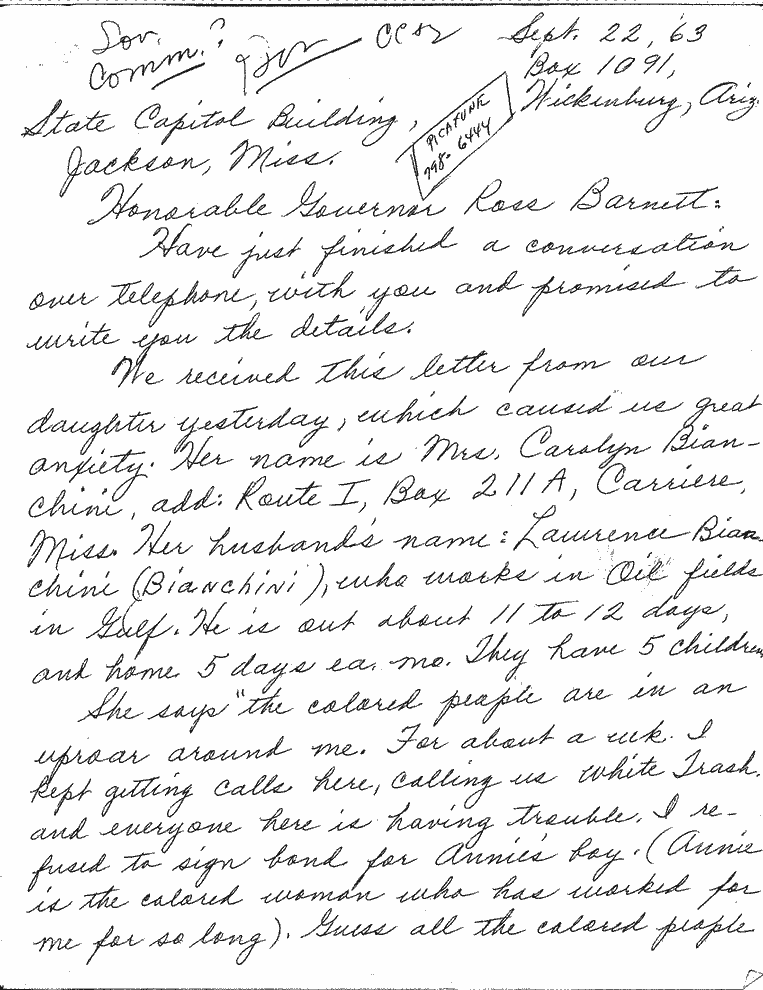 Sov. Comm.?
CC+2
Sept. 22, '63
Box 1091,
Wickenburg, Ariz.
PICAYUNE
798-6444
State Capitol Building,
Jackson, Miss.
Honorable Governor Ross Barnett:
Have just finished a conversation
over telephone, with you and promised to
write you the details.
We received this letter from our
daughter yesterday, which caused us great
anxiety. Her name is Mrs. Carolyn Bian-
chini, add: Route I, Box 211A, Carriere,
Miss. Her husband's name: Lawrence Bian-
chini (BIANCHINI), who works in Oil fields
in Gulf. He is out about 11 to 12 days,
and home 5 days ea. mo. They have 5 children
She says "the colored people are in an
uproar around me. For about a wk. I
kept getting calls here, calling us white Trash.
and everyone here is having trouble. I re-
fused to sign bond for Annie's boy. (Annie
is the colored woman who has worked for
me for so long). Guess all the colored people